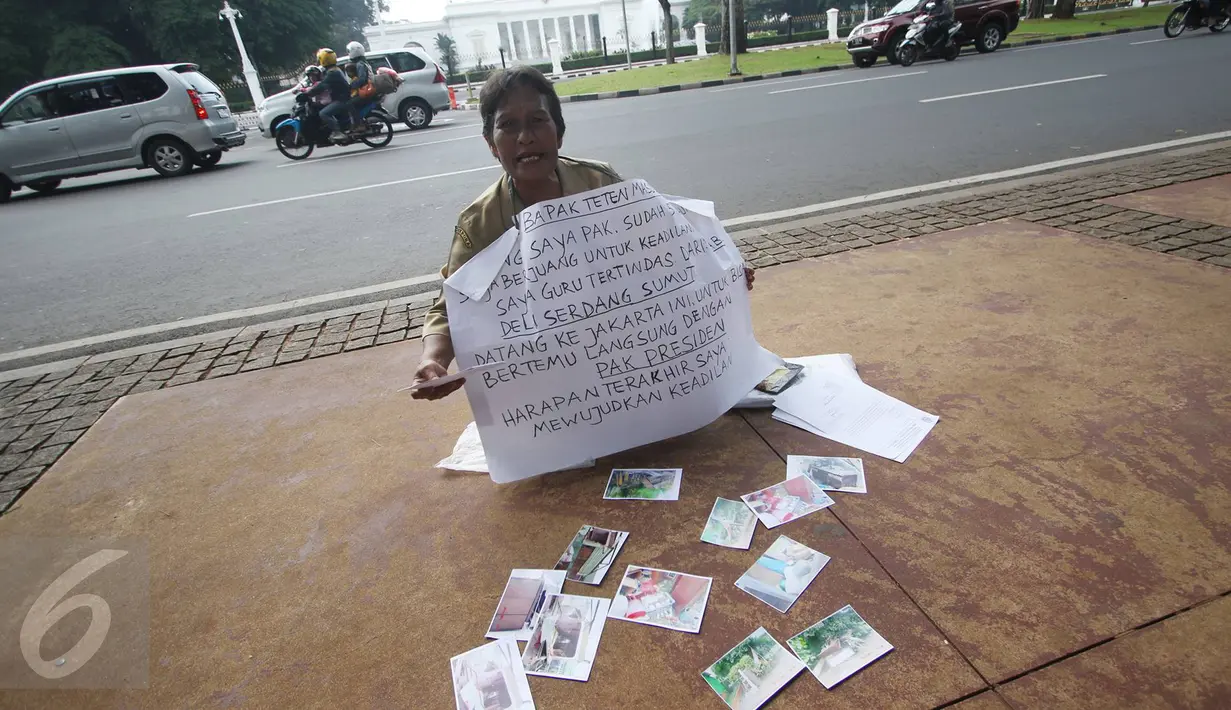 BAPAK TETEN
SAYA PAK. SUDAH
BERJUANG UNTUK KEADILAN
SAYA GURU TERTINDAS DARI
DELI SERDANG SUMUT
DATANG KE JAKARTA INI. UNTUK
BERTEMU LANGSUNG DENGAN
PAK PRESIDEN
HARAPAN TERAKHIR SAYA
MEWUJUDKAN KEADILAN
6